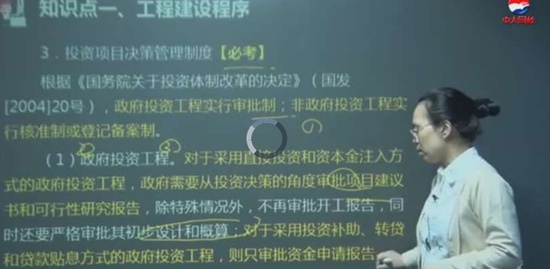 知识点一、工程建设程序
中大网校
3．投资项目决策管理制度【必考】
根据《国务院关于投资体制改革的决定》（国发
[2004]20号），政府投资工程实行审批制；非政府投资工程实
行核准制或登记备案制。
（1）政府投资工程。对于采用直接投资和资本金注入方
式的政府投资工程，政府需要从投资决策的角度审批项目建议
书和可行性研究报告，除特殊情况外，不再审批开工报告，同
时还要严格审批其初步设计和概算；对于采用投资补助、转贷
和贷款贴息方式的政府投资工程，则只审批资金申请报告。